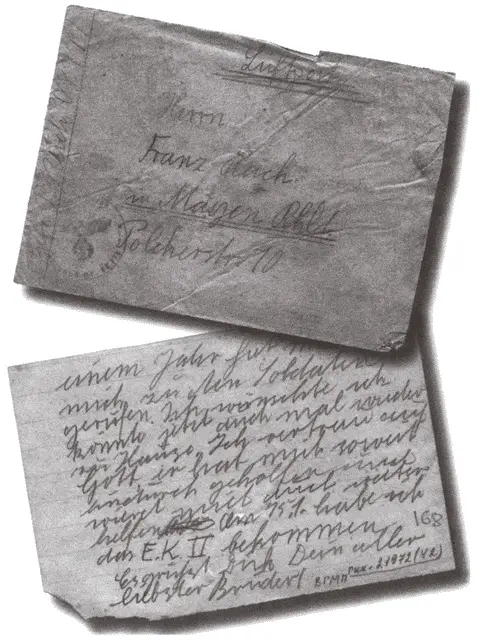 Luftpost
Herrn
Franz
in Mayen Rhld
Polcherstr 10
einem Jahr
mich zu den Soldaten
gerufen. Ich wünschte ich
könnte jetzt auch mal wieder
zu Hause. Ich vertrau auf
Gott er hat mich soweit
geholfen und
wird mich auch weiter
helfen Am habe ich
das E.K. II bekommen
Es grüßt Dich Dein aller
liebster Bruder
168